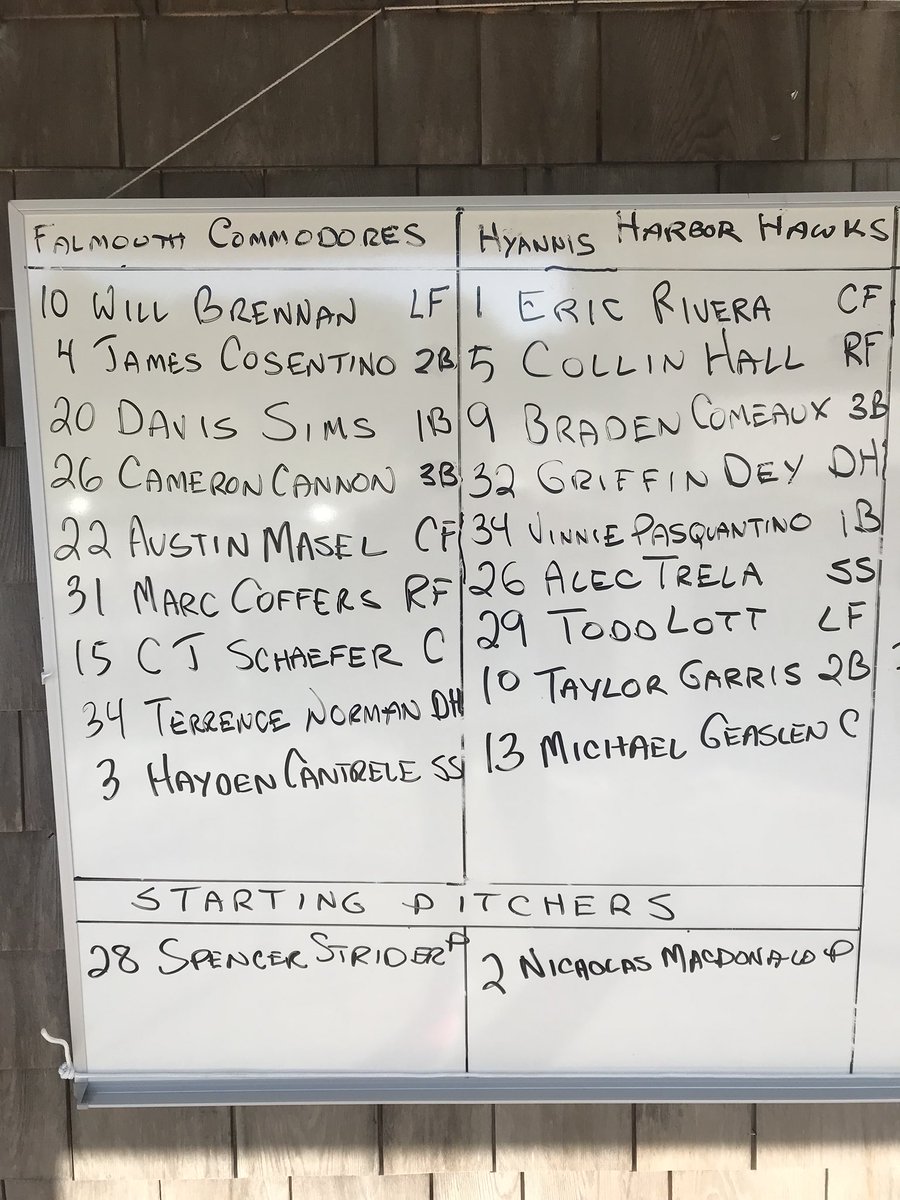 FALMOUTH COMMODORES
10 WILL BRENNAN LF
4 JAMES COSENTINO 2B
20 DAVIS SIMS 1B
26 CAMERON CANNON 3B
22 AUSTIN MASEL CF
31 MARC COFFERS RF
15 CJ SCHAEFER C
34 TERRENCE NORMAN DH
3 HAYDEN CANTRELE SS
HYANNIS HARBOR HAWKS
1 ERIC RIVERA CF
5 COLLIN HALL RF
9 BRADEN COMEAUX 3B
32 GRIFFIN DEY DH
34 VINNIE PASQUANTINO 1B
26 ALEC TRELA SS
29 TODD LOTT LF
10 TAYLOR GARRIS 2B
13 MICHAEL GEASLEN C
STARTING PITCHERS
28 SPENCER STRIDER P
2 NICHOLAS MACDONALD P